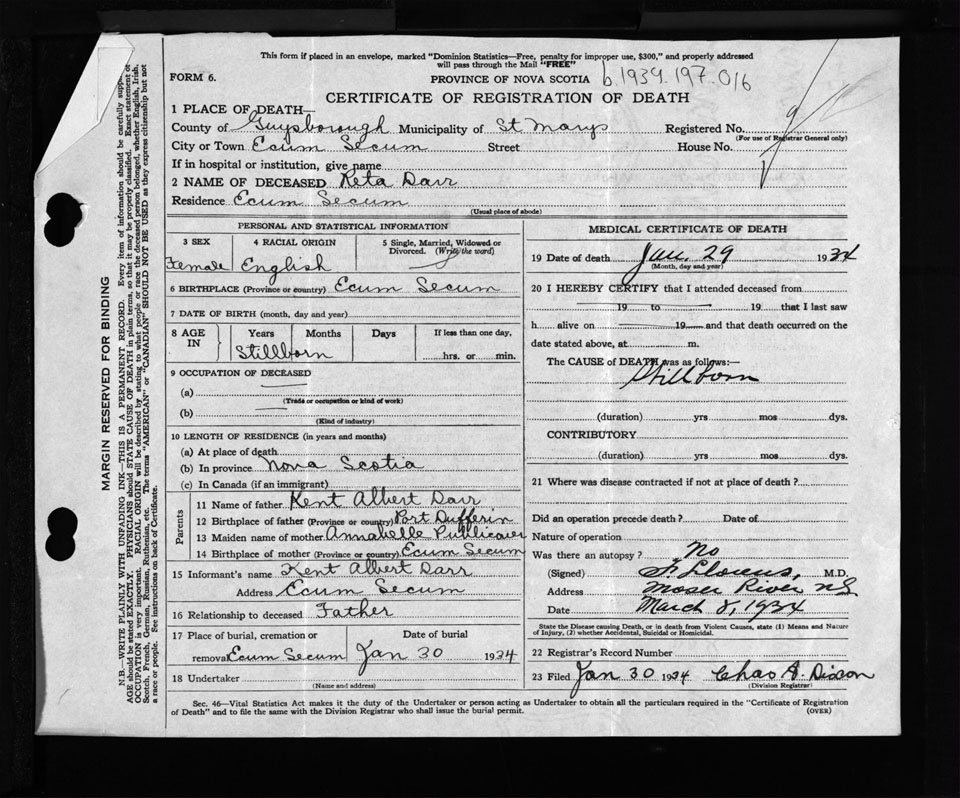 This form if placed in an envelope, marked "Dominion Statistics—Free, penalty for improper use, $300," and properly addressed
will pass through the Mail "FREE"
FORM 6.
PROVINCE OF NOVA SCOTIA b.1939.197.016
CERTIFICATE OF REGISTRATION OF DEATH
1 PLACE OF DEATH—
County of Guysborough Municipality of St Marys Registered No.
(For use of Registrar General only)
City or Town Ecum Secum Street House No.
If in hospital or institution, give name
2 NAME OF DECEASED Reta Darr
Residence Ecum Secum
(Usual place of abode)
PERSONAL AND STATISTICAL INFORMATION
3 SEX 4 RACIAL ORIGIN 5 Single, Married, Widowed or Divorced. (Write the word)
Female English
6 BIRTHPLACE (Province or country) Ecum Secum
7 DATE OF BIRTH (month, day and year)
8 AGE IN Years Months Days If less than one day,
Stillborn hrs. or min.
9 OCCUPATION OF DECEASED
(a)
(Trade or occupation or kind of work)
(b)
(Kind of industry)
10 LENGTH OF RESIDENCE (in years and months)
(a) At place of death
(b) In province Nova Scotia
(c) In Canada (if an immigrant)
Parents
11 Name of father Kent Albert Darr
12 Birthplace of father (Province or country) Port Dufferin
13 Maiden name of mother Annabelle Publicover
14 Birthplace of mother (Province or country) Ecum Secum
15 Informant's name Kent Albert Darr
Address Ecum Secum
16 Relationship to deceased Father
17 Place of burial, cremation or Date of burial
removal Ecum Secum Jan 30 1934
18 Undertaker
(Name and address)
MEDICAL CERTIFICATE OF DEATH
19 Date of death Jan. 29 1934
(Month, day and year)
20 I HEREBY CERTIFY that I attended deceased from
19 to 19 that I last saw
h alive on 19 and that death occurred on the
date stated above, at m.
The CAUSE OF DEATH was as follows:—
Stillborn
(duration) yrs mos dys.
CONTRIBUTORY
(duration) yrs mos dys.
21 Where was disease contracted if not at place of death?
Did an operation precede death? Date of
Nature of operation
Was there an autopsy? No
(Signed) M.D.
Address Moser River NS
Date March 8, 1934
State the Disease causing Death, or in death from Violent Causes, state (1) Means and Nature
of Injury, (2) whether Accidental, Suicidal or Homicidal.
22 Registrar's Record Number
23 Filed Jan 30 1934 Chas A. Dixon
(Division Registrar)
Sec. 46—Vital Statistics Act makes it the duty of the Undertaker or person acting as Undertaker to obtain all the particulars required in the "Certificate of Registration
of Death" and to file the same with the Division Registrar who shall issue the burial permit. (OVER)
MARGIN RESERVED FOR BINDING
N.B.—WRITE PLAINLY WITH UNFADING INK—THIS IS A PERMANENT RECORD. Every item of information should be carefully
AGE should be stated EXACTLY. PHYSICIANS should STATE CAUSE OF DEATH in plain terms, so that it may be properly classified. Exact statement of
OCCUPATION is very important. RACIAL ORIGIN will be described by stating to what people or race the deceased person belonged, whether English, Irish,
Scotch, French, German, Russian, Ruthenian, etc. The terms "AMERICAN" or "CANADIAN" SHOULD NOT BE USED as they express citizenship but not
a race or people. See instructions on back of Certificate.